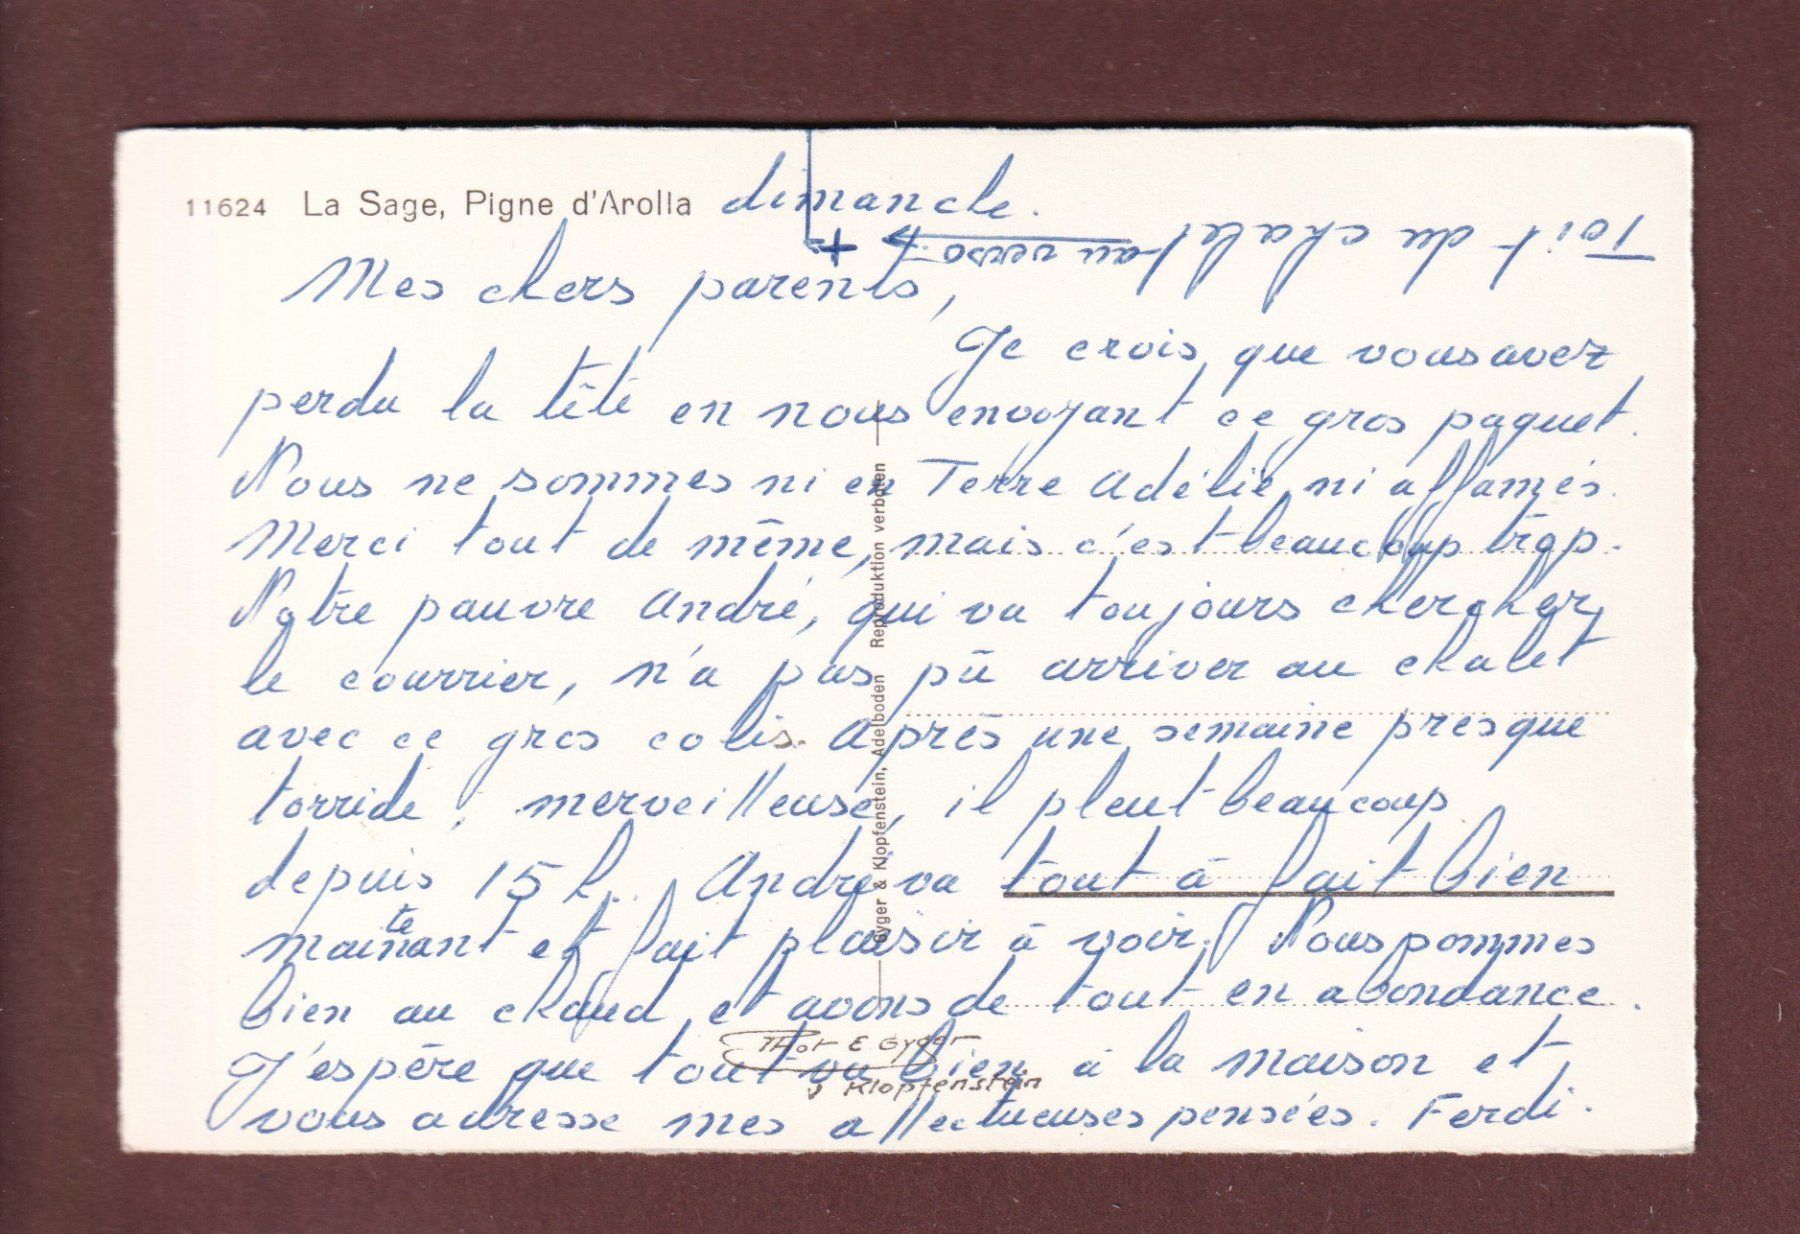 11624 La Sage, Pigne d'Arolla dimanche.
Toit du chalet au verso.
+
Mes chers parents,
Je crois que vous avez
perdu la tête en nous envoyant ce gros paquet.
Nous ne sommes ni en Terre Adélie, ni affamés.
Merci tout de même, mais c'est beaucoup trop.
Notre pauvre André, qui va toujours chercher
le courrier, n'a pas pû arriver au chalet
avec ce gros colis. Après une semaine presque
torride, merveilleuse, il pleut beaucoup
depuis 15 h.. André va tout à fait bien
maintenant et fait plaisir à voir. Nous sommes
bien au chaud et avons de tout en abondance.
J'espère que tout va bien à la maison et
vous adresse mes affectueuses pensées. Ferdi.
Gyger & Klopfenstein, Adelboden Reproduktion verboten
Phot E Gyger
Klopfenstein